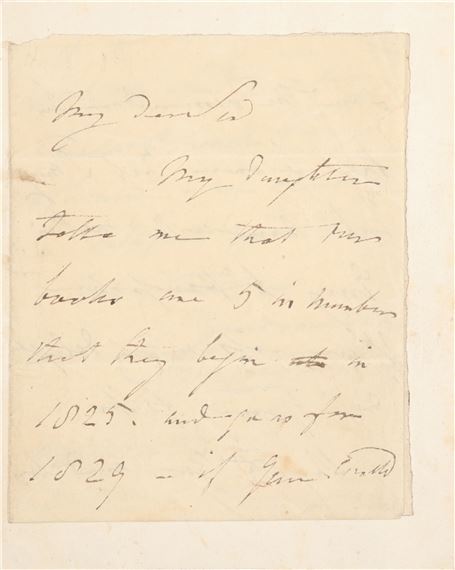 My Dear Sir
My Daughter
tells me that her
books are 5 in number
that they begin in
1825. and go as far
1829 - if you